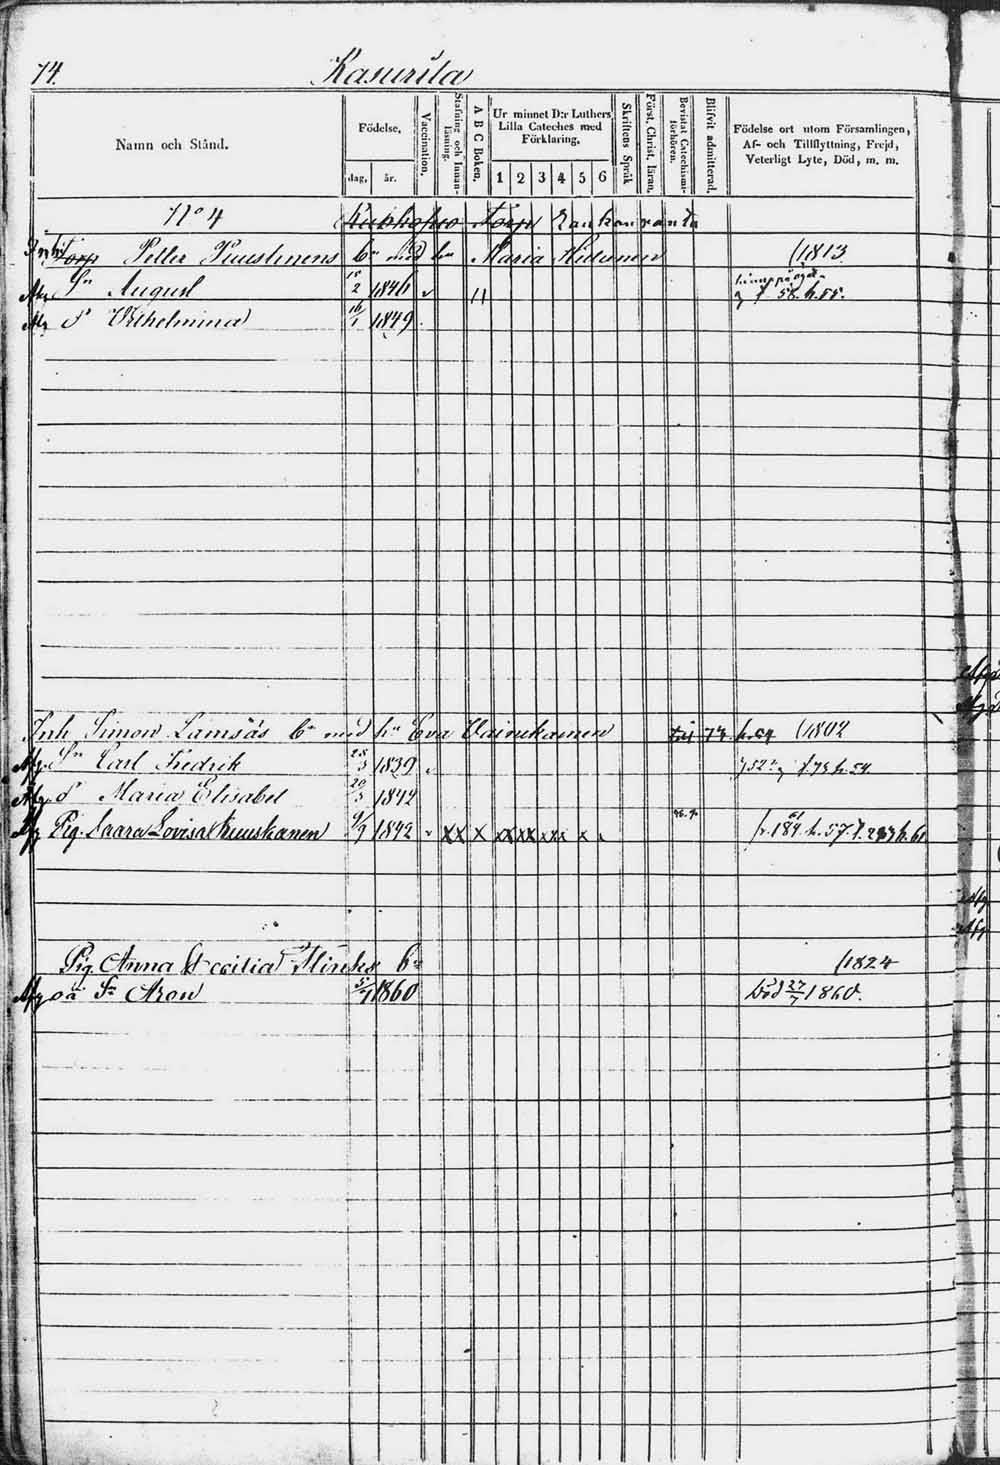 74.
Kasurila
Namn och Stånd.
Födelse,
dag, år.
Vaccination.
Stafning och Innanläsning.
A B C Boken.
Ur minnet D:r Luthers
Lilla Cateches med
Förklaring.
1 2 3 4 5 6
Skriftens Språk
Först. Christ. läran.
Bevistat Catechismiförhören.
Blifvit admitterad.
Födelse ort utom Församlingen,
Af- och Tillflyttning, Frejd,
Veterligt Lyte, Död, m. m.
No 4 Torp Rauhanranta
Torp Petter Puustinens bn med hu Maria (1813
Sn August 15/2 1846
p. 58. h. 55.
d Wilhelmina 16/1 1849
Inh Simon Lamsás bn med hu Eva Vainikainen 74 h. 64 (1802
Afg. Sn Carl Fredrik 28/3 1839 f. 73 h. 54.
Afg. d Maria Elisabet 20/3 1842
Afg Pig. Saara Lovisa Kuuskanen 9/9 1842 xx x xx xx xx x x
Pig. Anna Cecilia Flinks bn (1824
Afg oä Sn Aron 5/7 1860 Död 27/7 1860.